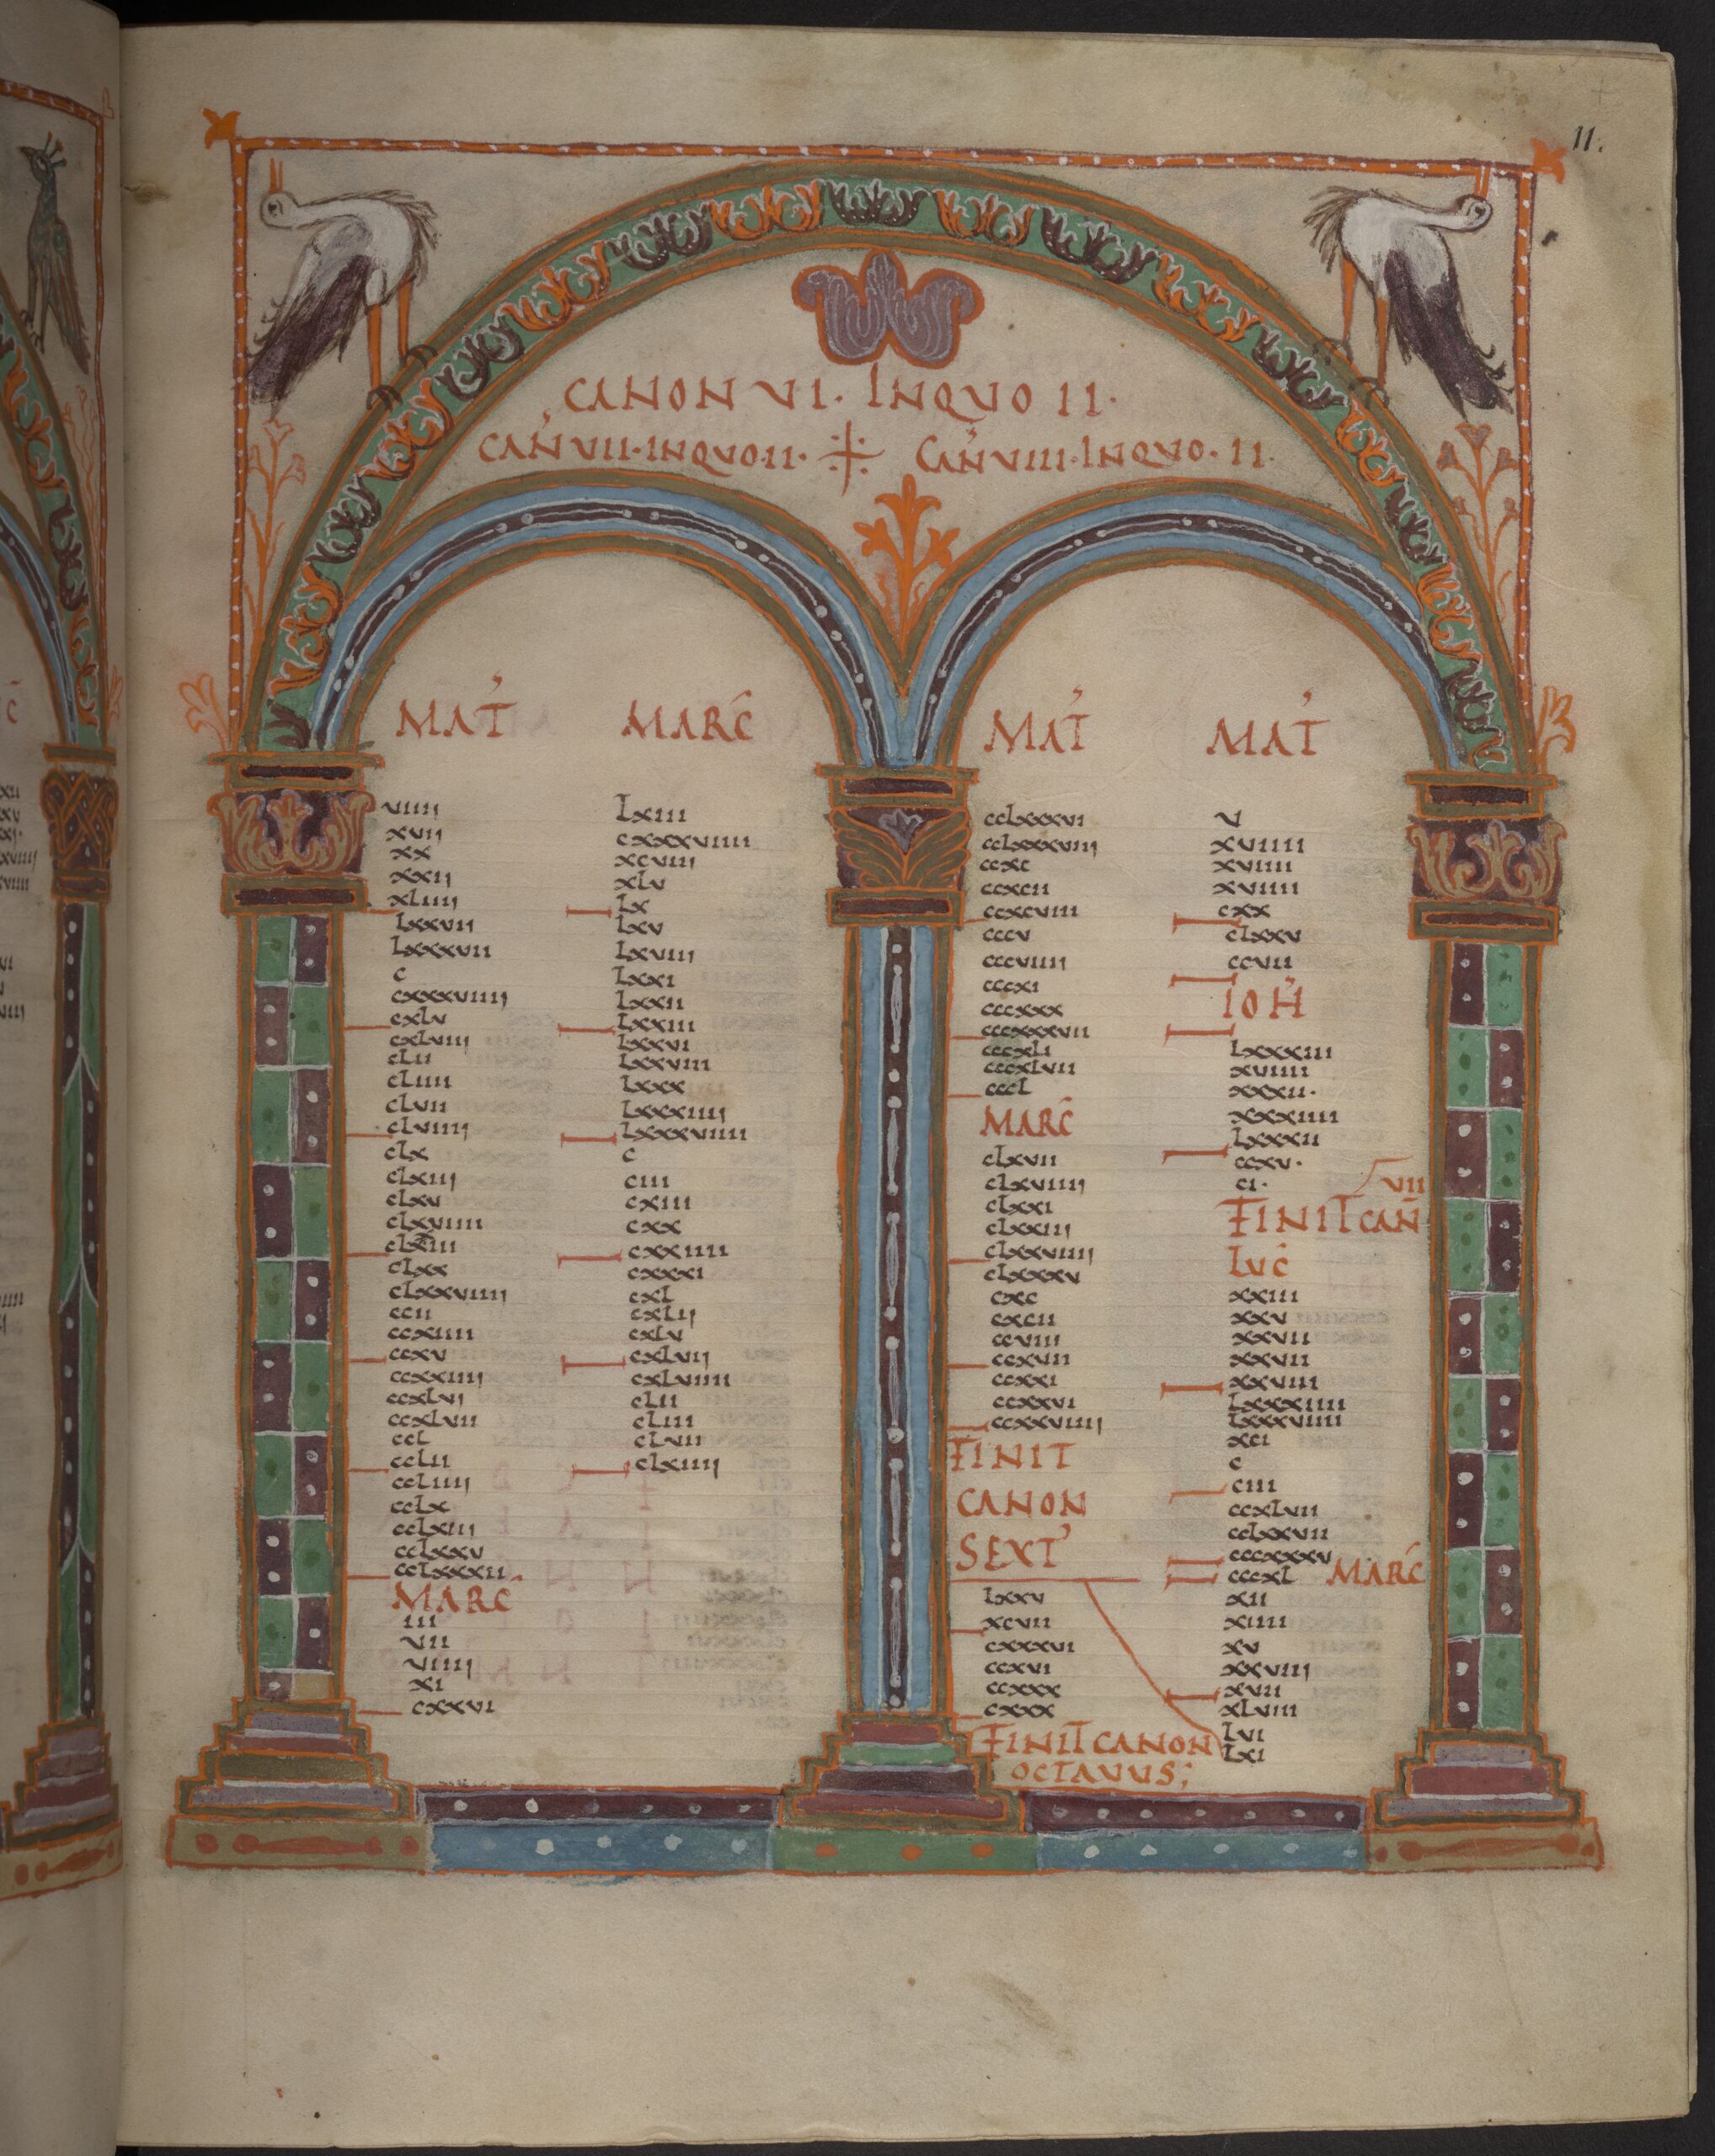 11.
CANON VI. INQVO II.
CAN VII. INQVO. II. CAN VIII. INQVO. II.
MAT
VIIII
XVII
XX
XXII
XLIIII
LXXVII
LXXXVII
C
CXXXVIIII
CXLV
CXLVIII
CLII
CLIIII
CLVII
CLVIIII
CLX
CLXIII
CLXV
CLXVIIII
CLXX
CLXXVIIII
CCII
CCXIIII
CCXV
CCXXIIII
CCXLVI
CCXLVII
CCL
CCLII
CCLIIII
CCLX
CCLXIII
CCLXXV
CCLXXXII
MARC
III
VII
VIIII
XI
CXXVI
MARC
LXIII
CXXXVIIII
XCVIII
XLV
LX
LXV
LXVIII
LXXI
LXXII
LXXIII
LXXVI
LXXVIII
LXXX
LXXXIIII
LXXXVIIII
C
CIII
CXIII
CXX
CXXIIII
CXXXI
CXL
CXLII
CXLV
CXLVII
CXLVIIII
CLII
CLIII
CLVII
CLXIIII
MAT
CCLXXXVI
CCLXXXVIII
CCXC
CCXCII
CCXCVIII
CCCV
CCCVIIII
CCCXI
CCCXXX
CCCXXXVII
CCCXLI
CCCXLVII
CCCL
MARC
CLXVII
CLXVIIII
CLXXI
CLXXIII
CLXXVIIII
CLXXXV
CXC
CXCII
CCVIII
CCXVII
CCXXI
CCXXVI
CCXXVIIII
FINIT
CANON
SEXT
LXXV
XCVII
CXXXVI
CCXVI
CCXXX
CXXX
FINIT CANON
OCTAVUS;
MAT
V
XVIIII
XVIIII
XVIIII
CXX
CLXXV
CCVII
IOH
LXXXIII
XVIIII
XXXII.
XXXIIII
LXXXII
CCXV.
CI.
VII
FINIT CAN
LUC
XXIII
XXV
XXVII
XXVII
XXVIII
LXXXIIII
LXXXVIIII
XCI
C
CIII
CCXLVII
CCLXXVII
CCCXXXV
CCCXL MARC
XII
XIIII
XV
XXVIII
XVII
XLVIII
LVI
LXI